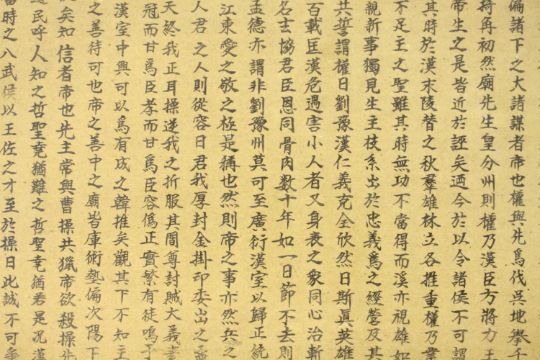 偏諸下之大諸謀者帝也權與先爲伐吳地擧千
持再初然廟先生皇分州則權乃漢臣方將力
帝生之是皆近於誣矣迺今於以今諸侯不可謂
其時於漢末陵替之秋羣雄林立各推重權乃
不足主之聖雖其時無功不當得而溪亦視雄如
親新事獨見生主枝系出於忠義爲之經營及其
共誓謂權日劉豫漢仁義克全欣然日斯眞英雄
百載匡漢危過害小人者又身表之衆同心治斬
名玄協君臣恩同骨肉数十年如一日節不去則
孟德亦謂非劉豫州莫可至廣衍漢室以歸正統
江東愛之敬之極是稱也然則帝之事亦然兵之
人君之人則從容日君我厚封金掛印奉出之
天終我正耳操逆我之折服其間尊封賊大義書
冠而甘爲臣孝而甘爲臣容僞正實繁有徒嗚
漢室中興可以爲有成之韓推矣觀其下不知主
之善待可也帝之善中之廟皆庫術熱偏次陽下
矣知信者帝也先主常與曹操共獵帝欲殺操
民呼人知之哲聖堯猶難之哲聖堯猶若是况漢
時之八武侯以王佐之才至於操日此誠不可